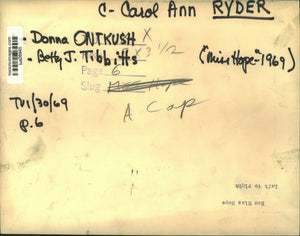 C- Carol Ann RYDER
- Donna ONTKUSH X
- Betty J. Tibbitts
X 3 1/2
("Miss Hope" 1969)
Page 6
Slug
A Cap
TU1/30/69
P.6
Left to right
New Miss Hope